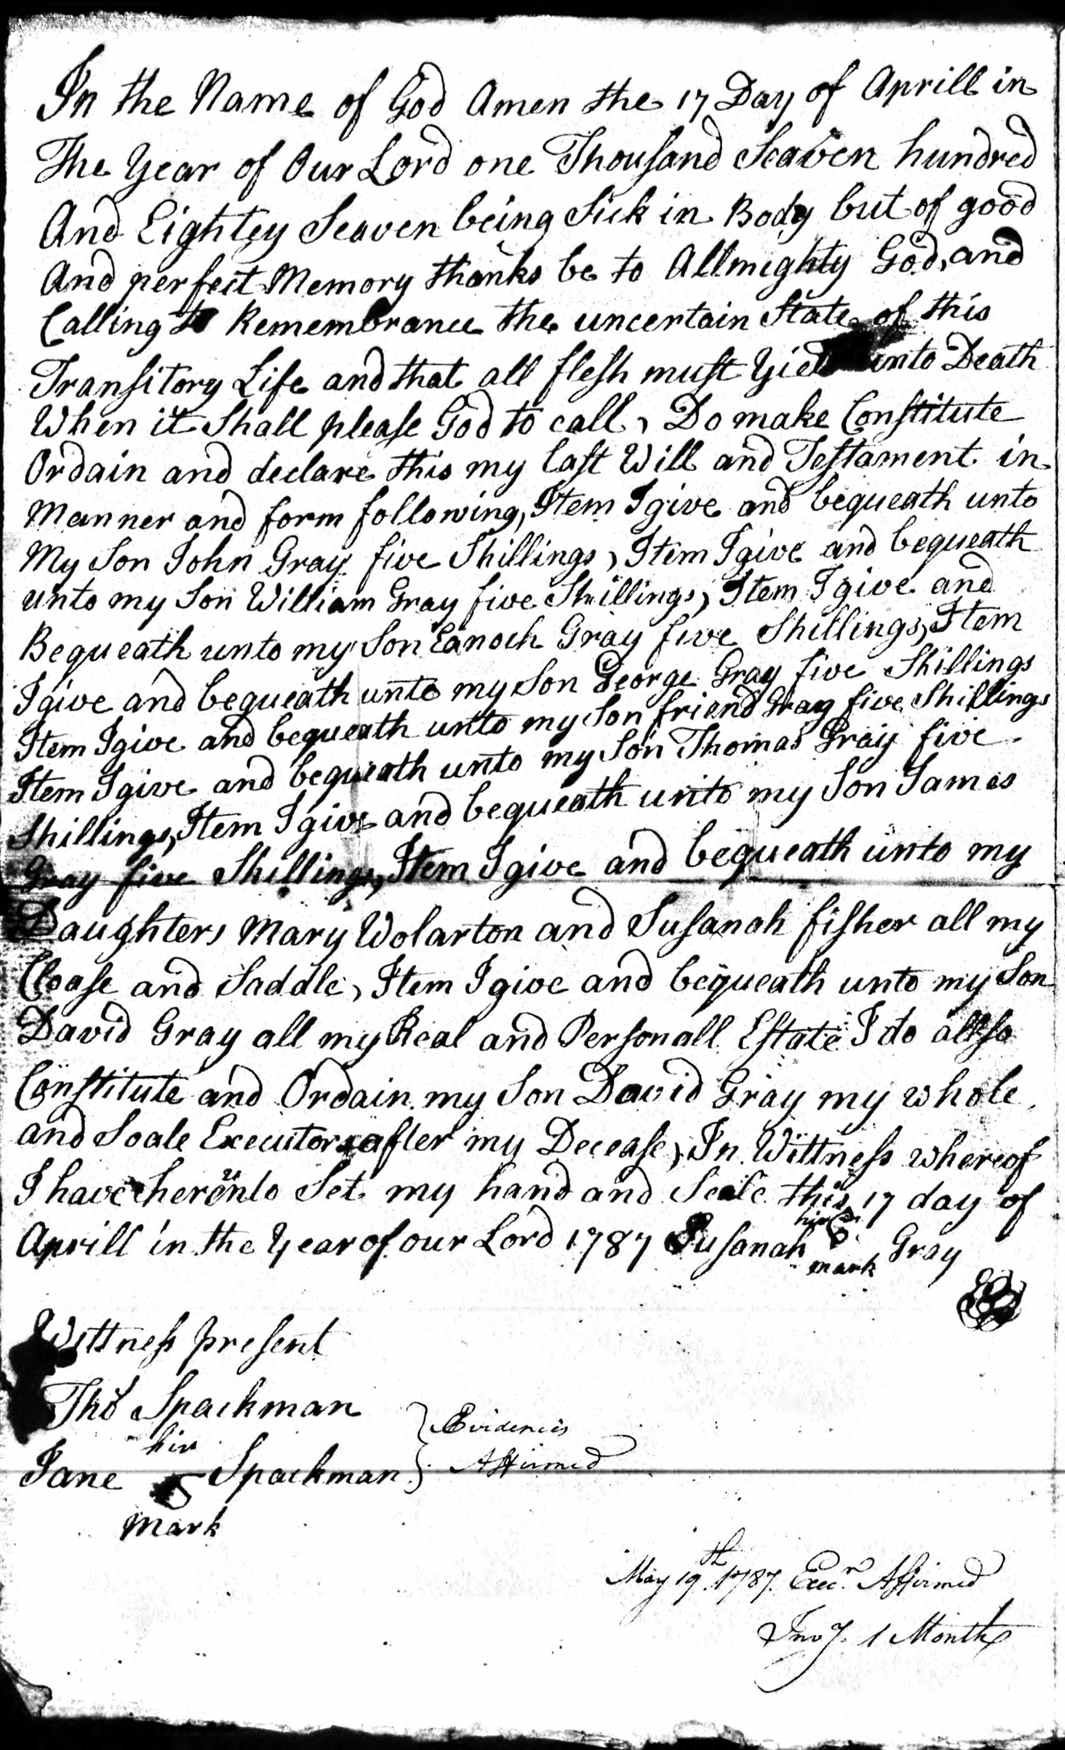 In the Name of God Amen the 17 Day of Aprill in
The Year of Our Lord one Thousand Seaven hundred
And Eightey Seaven being Sick in Body but of good
And perfect Memory thanks be to Allmighty God, and
Calling to Remembrance the uncertain State of this
Transitory Life and that all flesh must Yield unto Death
When it Shall please God to call, Do make Constitute
Ordain and declare this my last Will and Testament in
Manner and form following, Item I give and bequeath unto
My Son John Gray five Shillings, Item I give and bequeath
unto my Son William Gray five Shillings, Item I give and
Bequeath unto my Son Eanoch Gray five Shillings, Item
I give and bequeath unto my Son George Gray five Shillings
Item I give and bequeath unto my Son friend Gray five Shillings
Item I give and bequeath unto my Son Thomas Gray five
Shillings, Item I give and bequeath unto my Son James
Gray five Shillings, Item I give and bequeath unto my
Daughters Mary Wolarton and Susanah fisher all my
Cloase and Saddle, Item I give and bequeath unto my Son
David Gray all my Real and Personall Estate I do allso
Constitute and Ordain my Son David Gray my whole
and Soale Executor after my Decease, In Wittness whereof
I have hereunto Set my hand and Seale this 17 day of
Aprill in the Year of our Lord 1787 Susanah her mark Gray
Wittness present
Thos Spackman
Jane her mark Spackman } Evidences Affirmed
May 19th 1787 Execr Affirmed
Invy. 1 Month